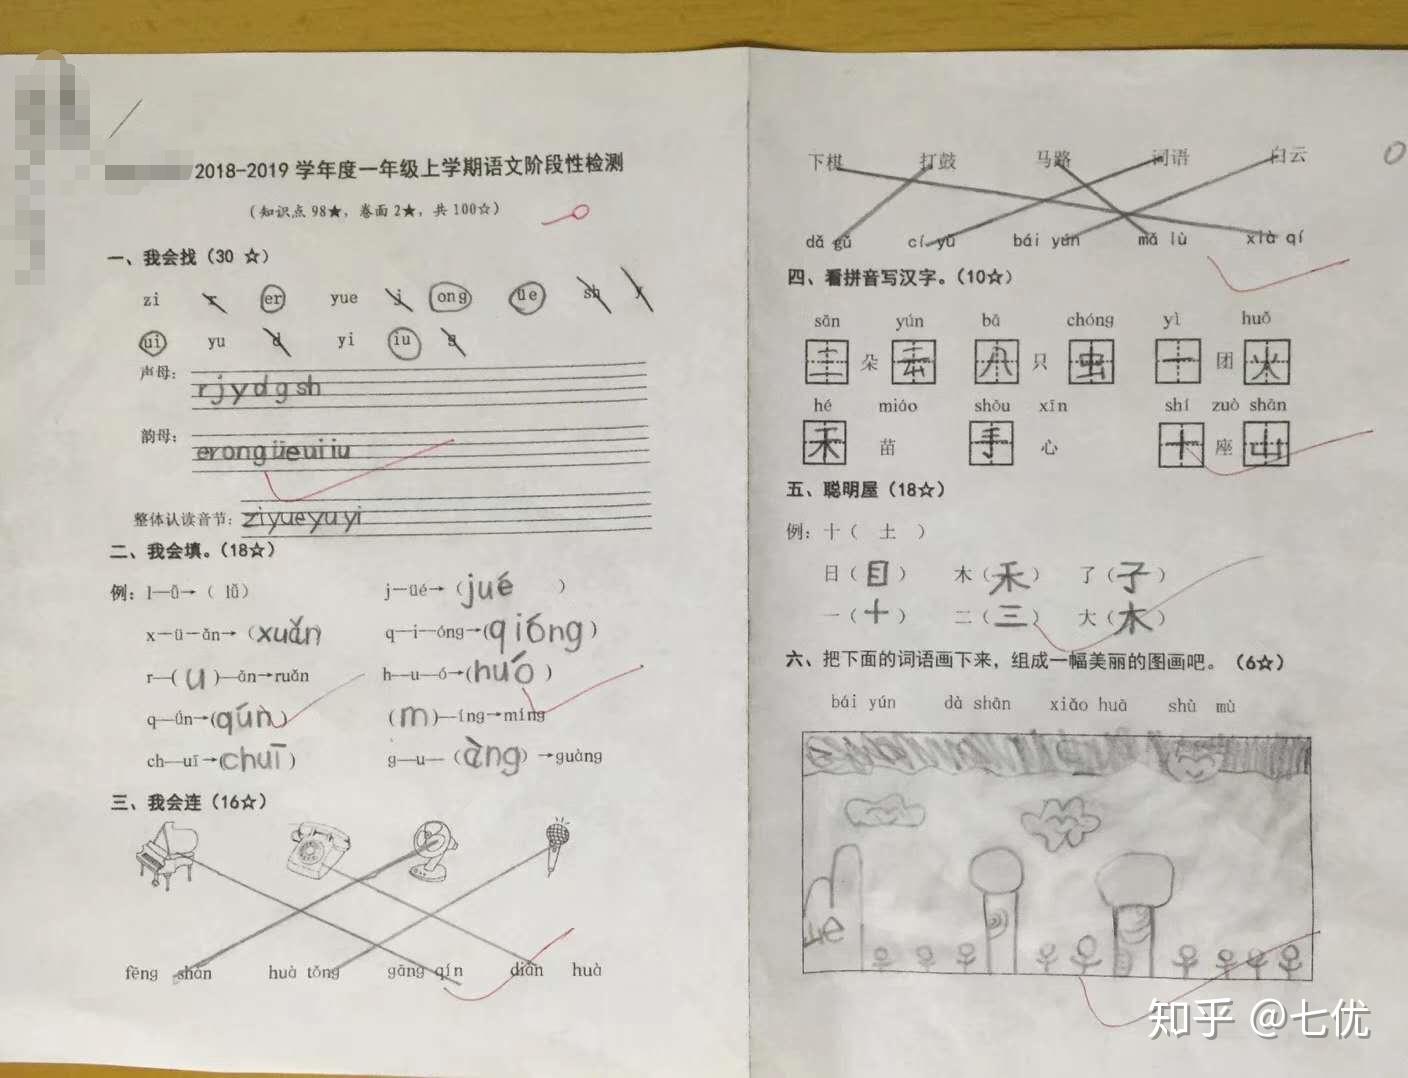 2018-2019 学年度一年级上学期语文阶段性检测
(知识点 98★, 卷面 2★, 共 100☆)
一、我会找(30 ☆)
zi r er yue j ong üe sh y
ui yu d yi iu g
声母:
r j y d g sh
韵母:
er ong üe ui iu
整体认读音节:
zi yue yu yi
二、我会填。(18☆)
例: l—ǚ→( lǚ) j—üé→(jué)
x—ü—ǎn→(xuǎn) q—i—óng→(qióng)
r—(u)—ǎn→ruǎn h—u—ó→(huó)
q—ún→(qún) (m)—íng→míng
ch—uī→(chuī) g—u—(àng)→guàng
三、我会连(16☆)
fēng shàn huà tǒng gāng qín diàn huà
下棋 打鼓 马路 词语 白云
dǎ gǔ cí yǔ bái yún mǎ lù xià qí
四、看拼音写汉字。(10☆)
sān yún bā chóng yì huǒ
三 朵 云 八 只 虫 一 团 火
hé miáo shǒu xīn shí zuò shān
禾 苗 手 心 十 座 山
五、聪明屋(18☆)
例: 十( 土 )
日(目) 木(禾) 了(子)
一(十) 二(三) 大(木)
六、把下面的词语画下来,组成一幅美丽的图画吧。(6☆)
bái yún dà shān xiǎo huā shù mù
知乎 @七优